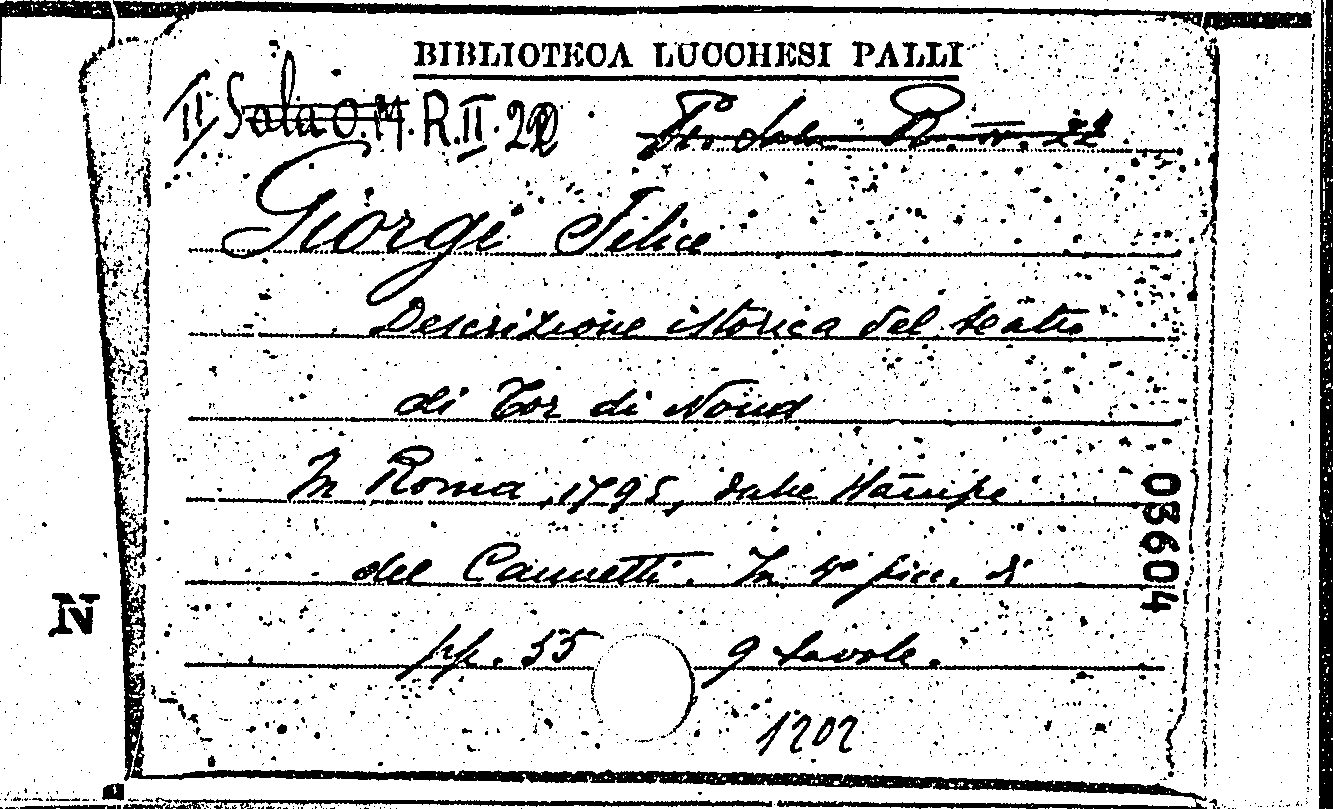 BIBLIOTECA LUCCHESI PALLI
II Sala O.M. R.II.22
Sala B. IV. 22
Giorgi Felice
Descrizione istorica del teatro
di Tor di Nona
In Roma, 1795, dalle stampe
del Cannetti. In 4° picc. di
pp. 55 9 tavole.
1202
03604
N